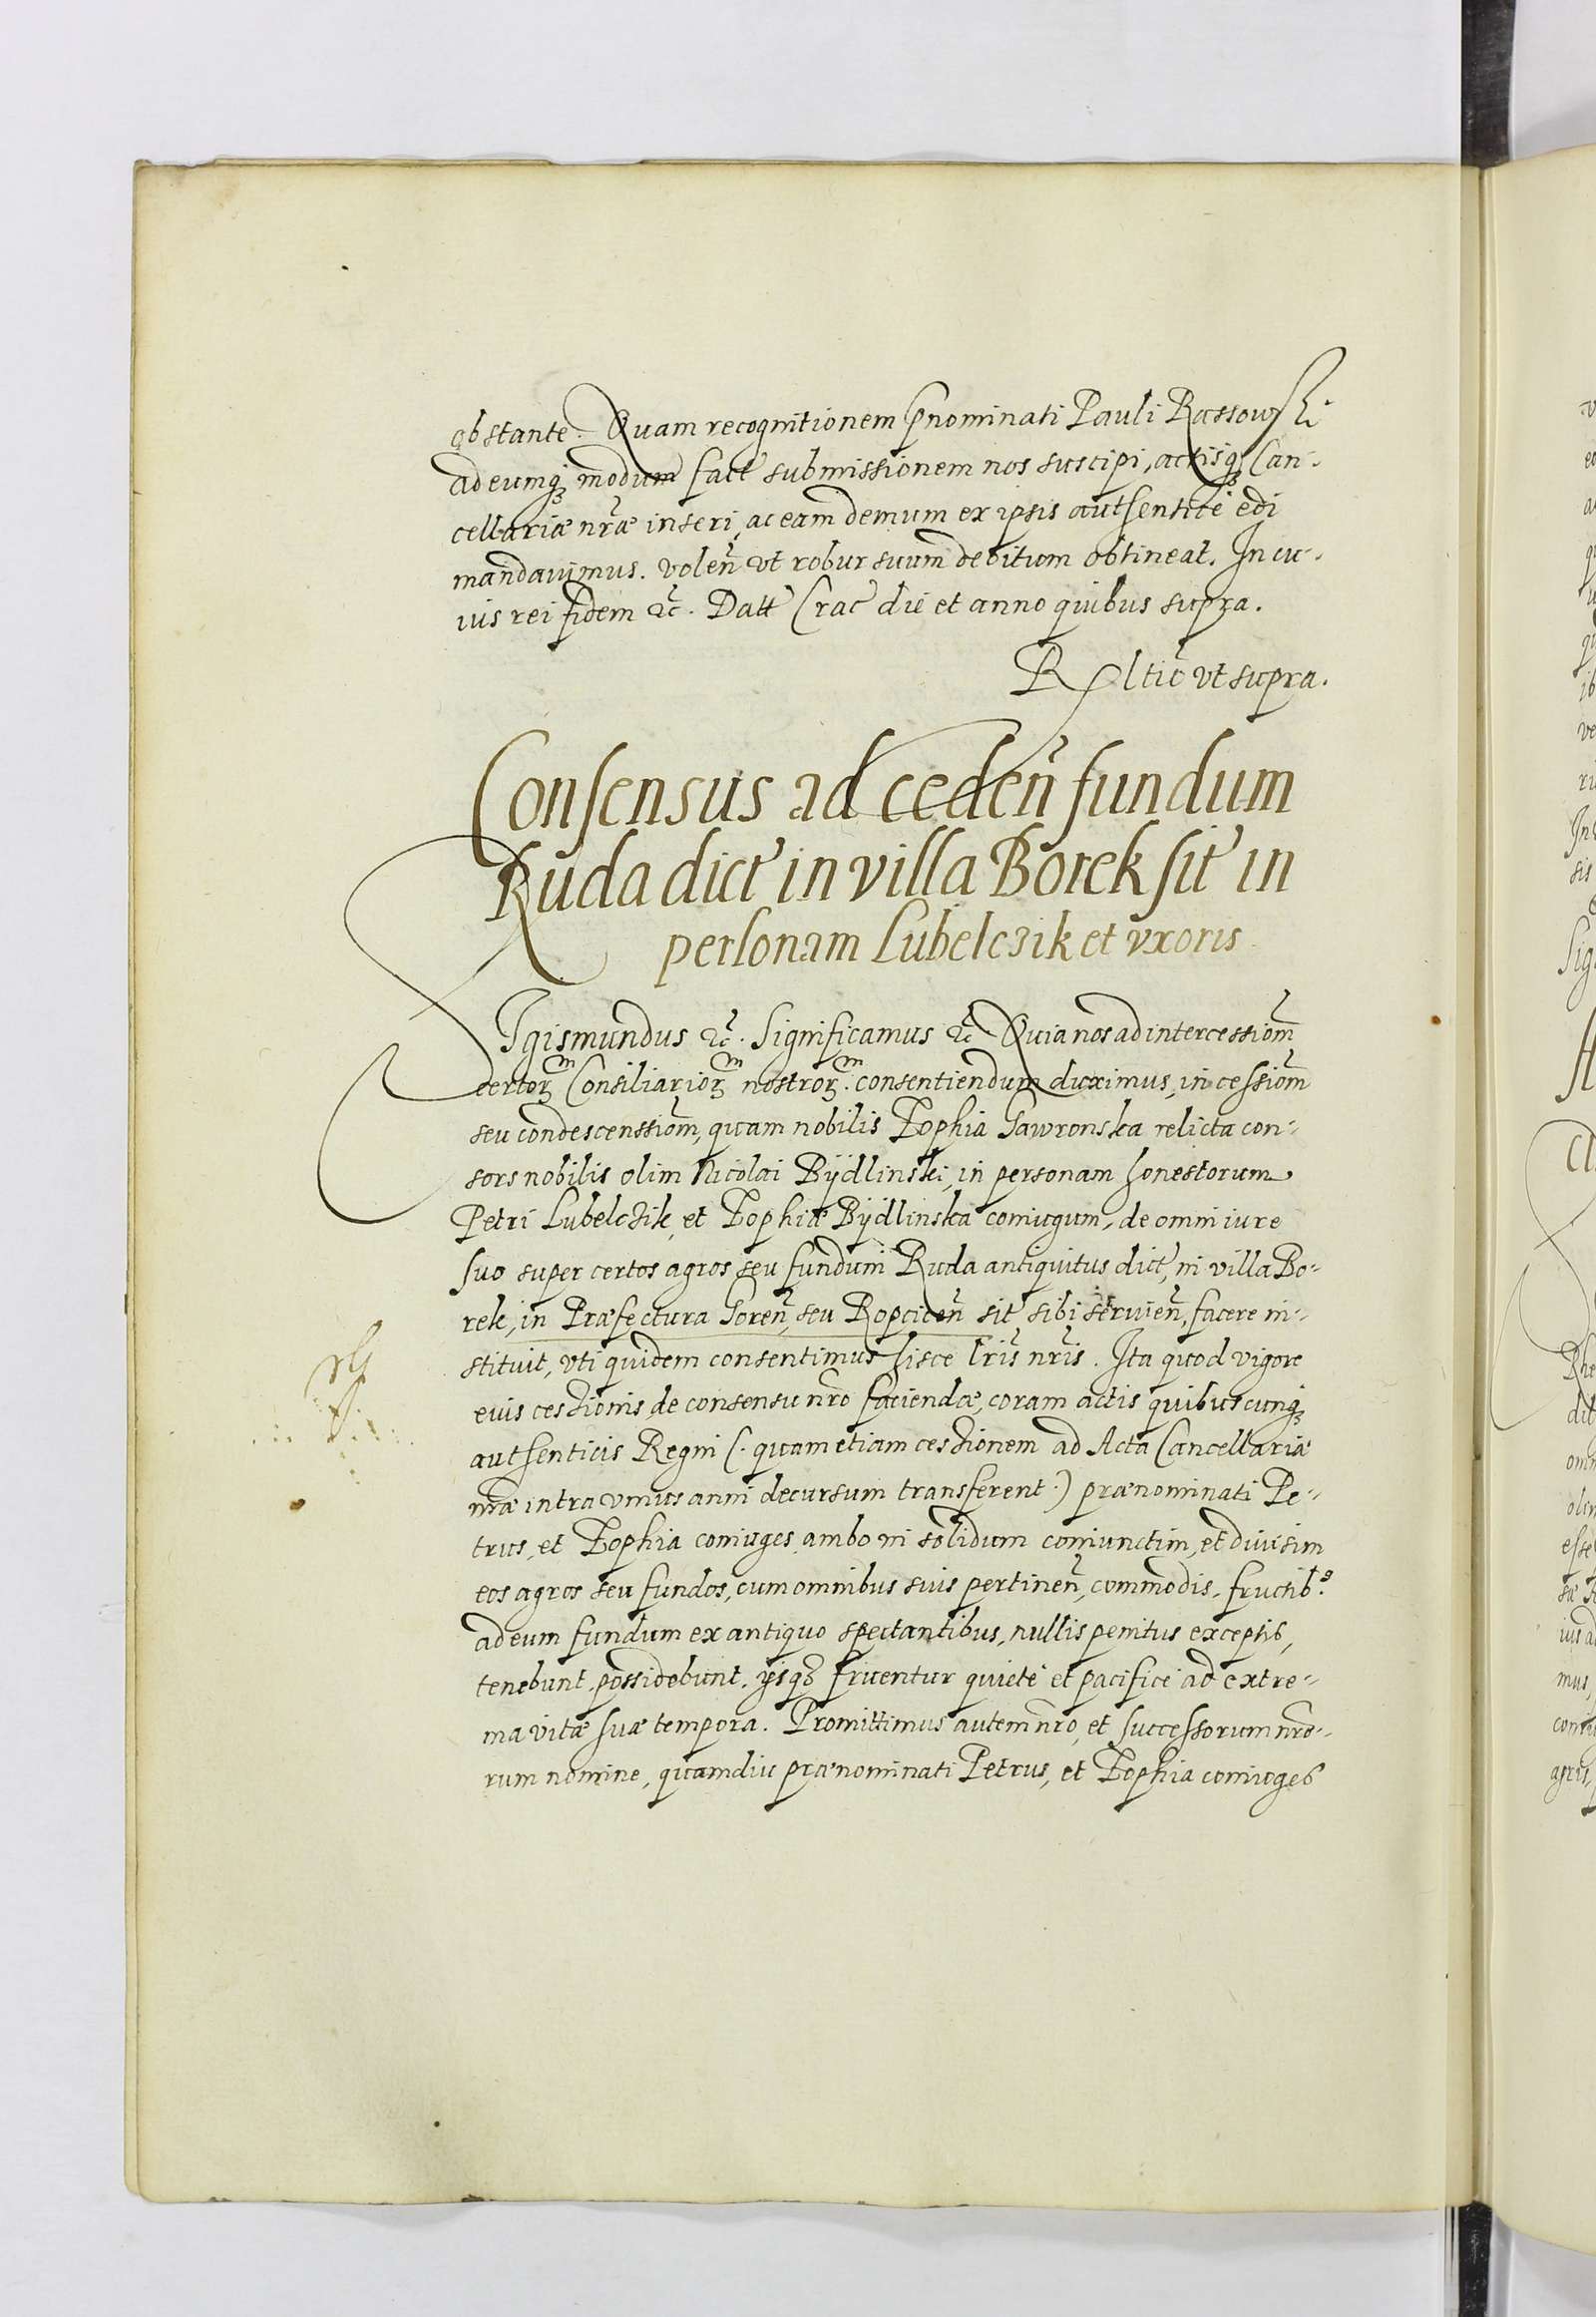 obstante. Quam recognitionem p̃nominati Pauli Rassowski
ad eumq₃ modum fact̃ submissionem nos suscipi, actisq₃ Can-
cellariæ nr̃æ inseri, ac eam demum ex ipsis authenticè edi
mandavimus. volen̄ vt robur suum debitum obtineat. In cu-
ius rei fidem ꝛc̃. Datt̃ Crac̃ die et anno quibus supra.
Rltio ̃vt supra.
Consensus ad ceden̄ fundum
Ruda dict̃ in villa Borek sit̃ in
personam Lubelczik et vxoris
Sigismundus ꝛc̃. Significamus ꝛc̃ Quia nos ad intercessiom̃
certorꝫ Consiliariorꝫ nostrorꝫ. consentiendum duximus, in cessiom̃
seu condescenssiom̃, quam nobilis Zophia Gawronska relicta con-
sors nobilis olim Nicolai Bÿdlinski, in personam honestorum
Petri Lubelczik, et Zophiæ Bÿdlinska coniugum, de omni iure
suo super certos agros seu fundum Ruda antiquitus dict̃, in villa Bo-
rek, in Præfectura Goren̄, seu Ropcicen̄ sit̃ sibi servien̄, facere in-
stituit, vti quidem consentimus hisce lr̃is nr̃is. Ita quod vigore
euis cessionis de consensu nr̃o faciendæ, coram actis quibuscunq₃
authenticis Regni (. quam etiam cessionem ad Acta Cancellariæ
nr̃æ intra vnius anni decursum transferent .) prænominati Pe-
trus, et Zophia coniuges ambo in solidum coniunctim, et divisim
eos agros seu fundos, cum omnibus suis pertinen̄, commodis, fructib⁹.
ad eum fundum ex antiquo spectantibus, nullis penitus exceptis,
tenebunt, possidebunt. ijsq₃ fruentur quietè et pacificè ad extre-
ma vitæ suæ tempora. Promittimus autem nr̃o, et successorum nr̃o-
rum nomine, quamdiu prænominati Petrus, et Zophia coniuges